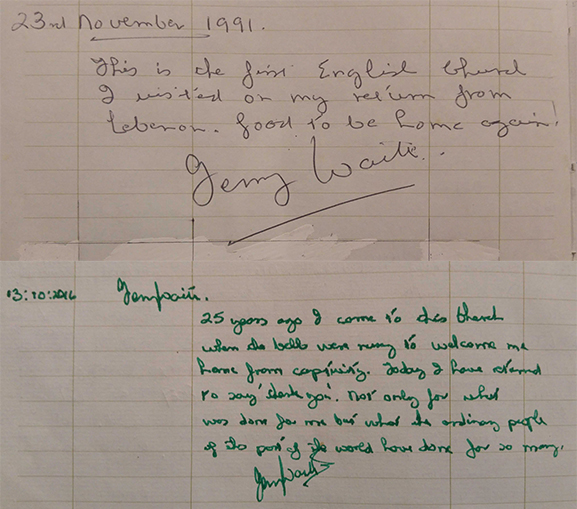 23rd November 1991.
This is the first English Church
I visited on my return from
Lebanon. Good to be home again!
Terry Waite.
13:10:2016 Terry Waite.
25 years ago I came to this Church
when the bells were rung to welcome me
home from captivity. Today I have returned
to say 'thank you'. Not only for what
was done for me but what the ordinary people
of this part of the world have done for so many.
Terry Waite